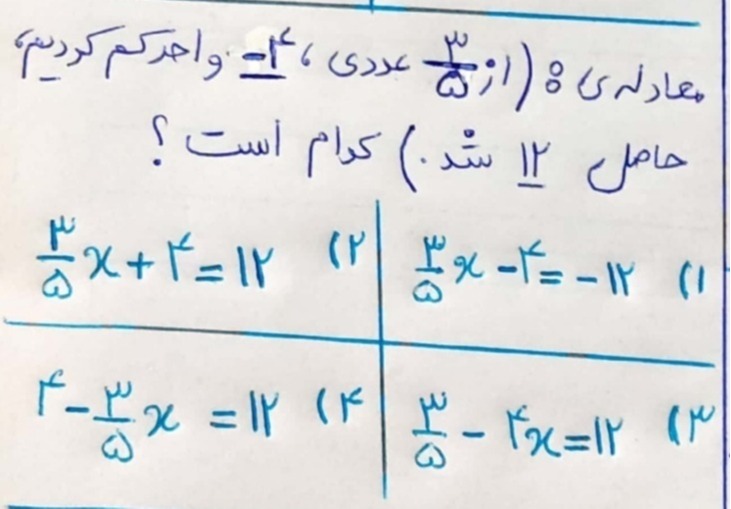 معادله‌ی : (از ۳/۵ عددی ، ۴- واحد کم کردیم،
حاصل ۱۲ شد.) کدام است ؟
۱) ۳/۵ x - ۴ = - ۱۲
۲) ۳/۵ x + ۴ = ۱۲
۳) ۳/۵ - ۴x = ۱۲
۴) ۴ - ۳/۵ x = ۱۲